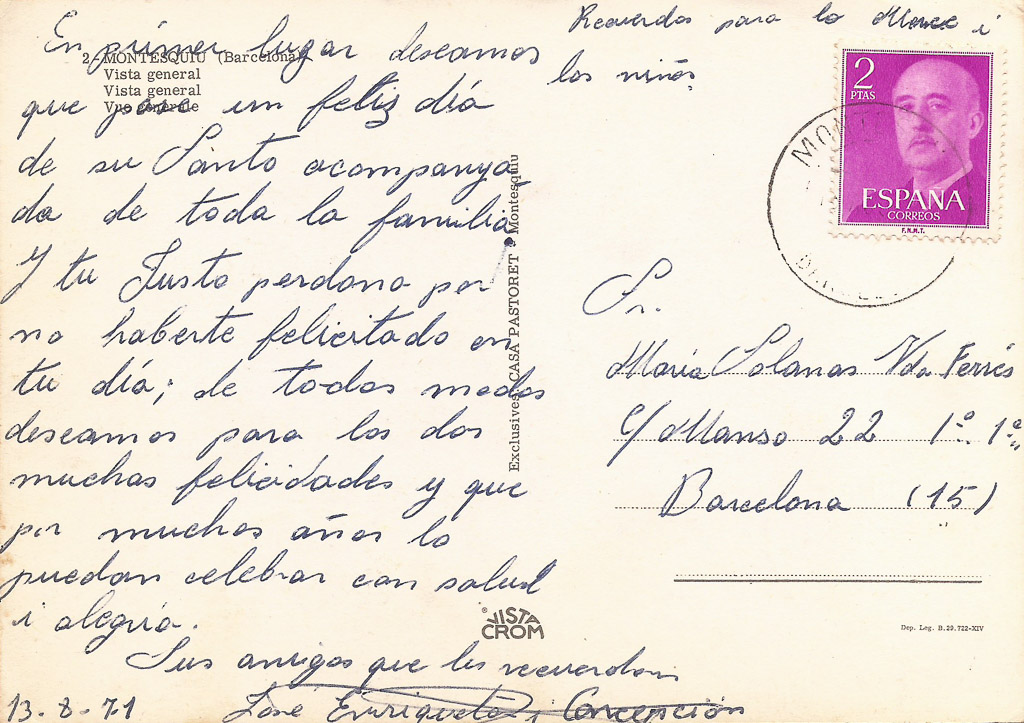 Recuerdos para la Merce i
los niños
En primer lugar deseamos
que pase un feliz día
de su Santo acompanya
da de toda la familia
Y tu Justo perdona por
no haberte felicitado en
tu día; de todos modos
deseamos para los dos
muchas felicidades y que
por muchos años lo
puedan celebrar con salud
i alegria.
Sus amigos que les recuerdan
José Enriqueta i Concepción
13-8-71
2 - MONTESQUIU (Barcelona)
Vista general
Vista general
Vue generale
Exclusives CASA PASTORET • Montesquiu
VISTA
CROM
2
PTAS
ESPAÑA
CORREOS
F.N.M.T.
Sr.
Maria Solanas Vda Ferrés
C/ Manso 22 1º. 1ª.
Barcelona (15)
Dep. Leg. B. 29.722-XIV